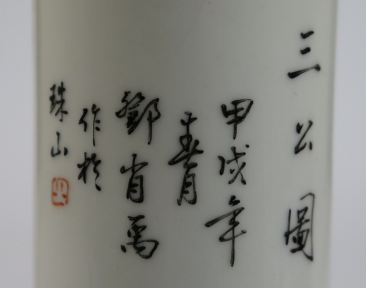 三公圖
甲戌年
春月
鄧肖禹
作於
珠山